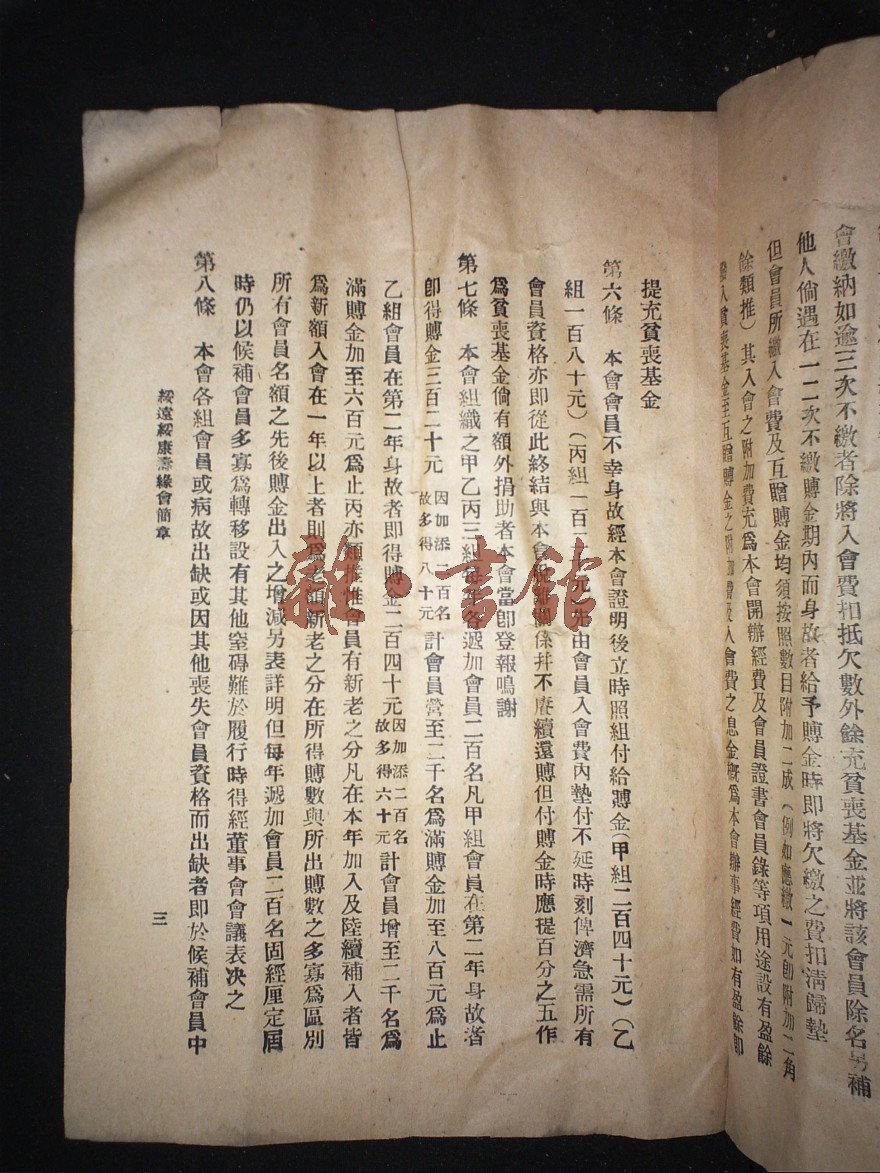 會繳納如逾三次不繳者除將入會費扣抵欠數外餘充貧喪基金並將該會員除名另補
他人倘遇在一二次不繳賻金期內而身故者給予賻金時即將欠繳之費扣清歸墊
但會員所繳入會費及互贈賻金均須按照數目附加二成（例如應繳一元卽附加二角
餘類推）其入會之附加費充爲本會開辦經費及會員證書會員錄等項用途設有盈餘
撥入貧喪基金至互贈賻金之附加費及入會費之息金概爲本會辦事經費如有盈餘卽
提充貧喪基金
第六條　本會會員不幸身故經本會證明後立時照組付給賻金（甲組二百四十元）（乙
組一百八十元）（丙組一百二十元）先由會員入會費內墊付不延時刻俾濟急需所有
會員資格亦即從此終結與本會脫離關係幷不賡續還賻但付賻金時應提百分之五作
爲貧喪基金倘有額外捐助者本會當卽登報鳴謝
第七條　本會組織之甲乙丙三組每年各遞加會員二百名凡甲組會員在第二年身故者
卽得賻金三百二十元因加添二百名故多得八十元計會員營至二千名爲滿賻金加至八百元爲止
乙組會員在第二年身故者即得賻金二百四十元因加添二百名故多得六十元計會員增至二千名爲
滿賻金加至六百元爲止丙亦類推惟會員有新老之分凡在本年加入及陸續補入者皆
爲新額入會在一年以上者則爲老額新老之分在所得賻數與所出賻數之多寡爲區別
所有會員名額之先後賻金出入之增減另表詳明但每年遞加會員二百名固經厘定屆
時仍以候補會員多寡爲轉移設有其他窒碍難於履行時得經董事會會議表决之
第八條　本會各組會員或病故出缺或因其他喪失會員資格而出缺者即於候補會員中
綏遠綏康壽緣會簡章
三
雜·書館